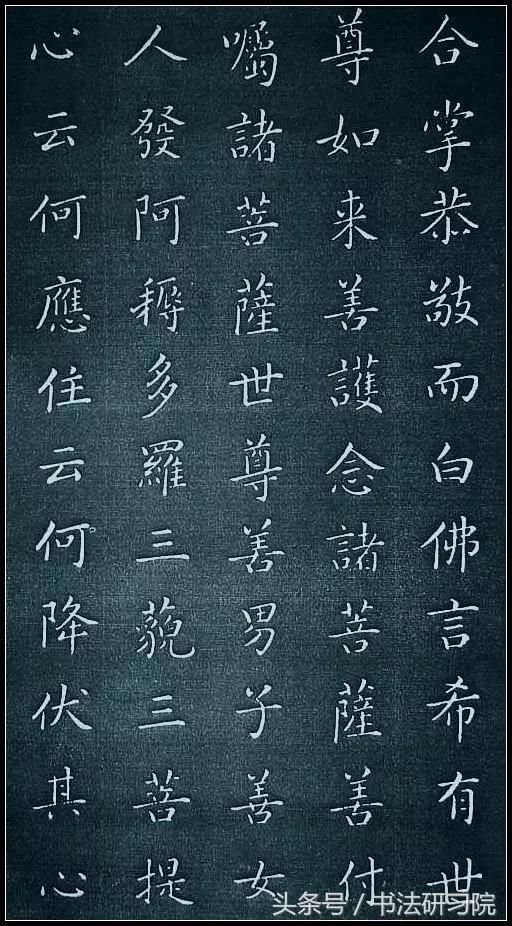 合掌恭敬而白佛言希有世
尊如来善護念諸菩薩善付
囑諸菩薩世尊善男子善女
人發阿耨多羅三藐三菩提
心云何應住云何降伏其心
头条号/书法研习院